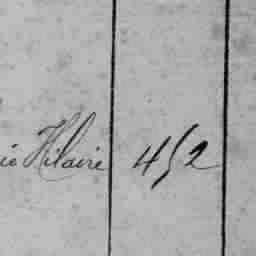 ie Hilaire 452